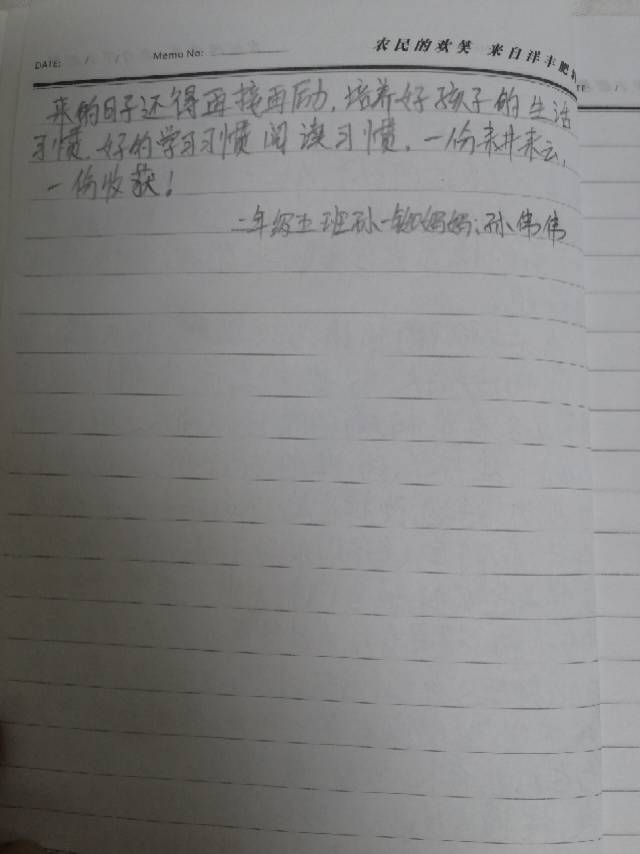 DATE: / / Memo No: 农民的欢笑 来自洋丰肥
来的日子还得再接再励,培养好孩子的生活
习惯,好的学习习惯阅读习惯,一份耕耘,
一份收获!
二年级五班孙一 妈妈:孙伟伟